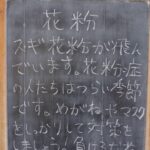 花粉
スギ花粉が飛ん
でいます。花粉症
の人たちはつらい季節
です。めがねだマスク
をしっかりして対策を
しましょう!負けるな